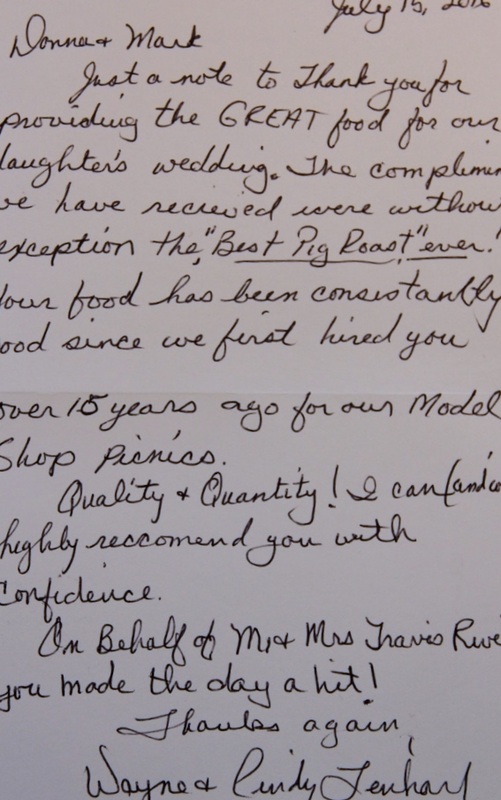 July 15, 2016
Donna & Mark
Just a note to Thank you for
providing the GREAT food for our
daughter's wedding. The complimen
we have recieved were without
exception the, "Best Pig Roast" ever!
Your food has been consistantly
ood since we first hired you
over 15 years ago for our Model
Shop Picnics.
Quality & Quantity! I can (and
highly reccomend you with
Confidence.
On Behalf of Mr & Mrs Travis
you made the day a hit!
Thanks again,
Wayne & Cindy